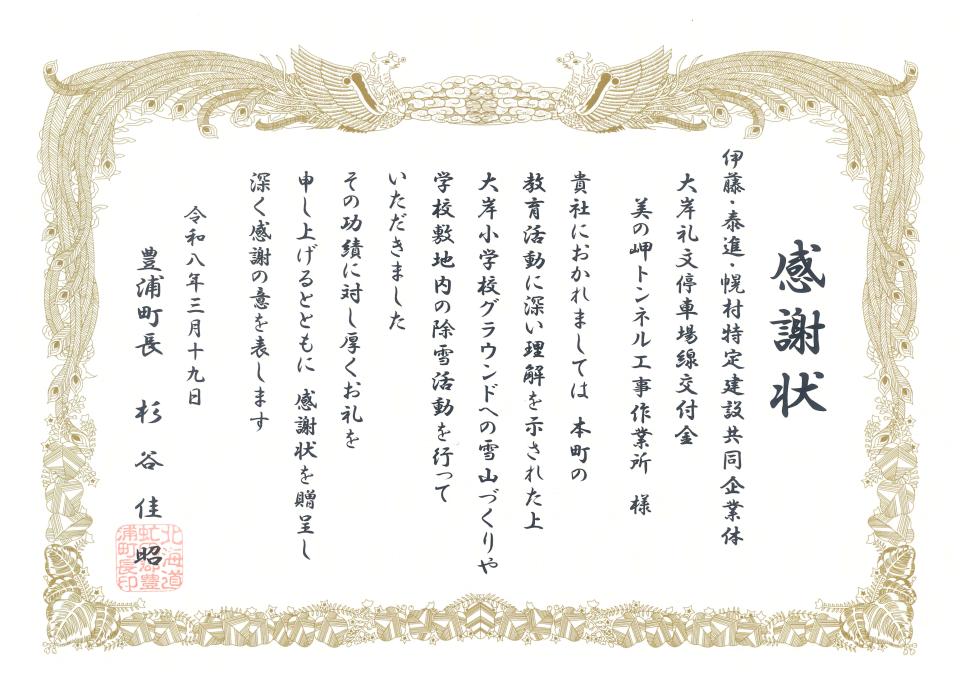 感謝状
伊藤・泰進・幌村特定建設共同企業体
大岸礼文停車場線交付金
美の岬トンネル工事作業所 様
貴社におかれましては 本町の
教育活動に深い理解を示された上
大岸小学校グラウンドへの雪山づくりや
学校敷地内の除雪活動を行って
いただきました
その功績に対し厚くお礼を
申し上げるとともに 感謝状を贈呈し
深く感謝の意を表します
令和八年三月十九日
豊浦町長 杉谷佳昭
北海道
虻田郡豊
浦町長印